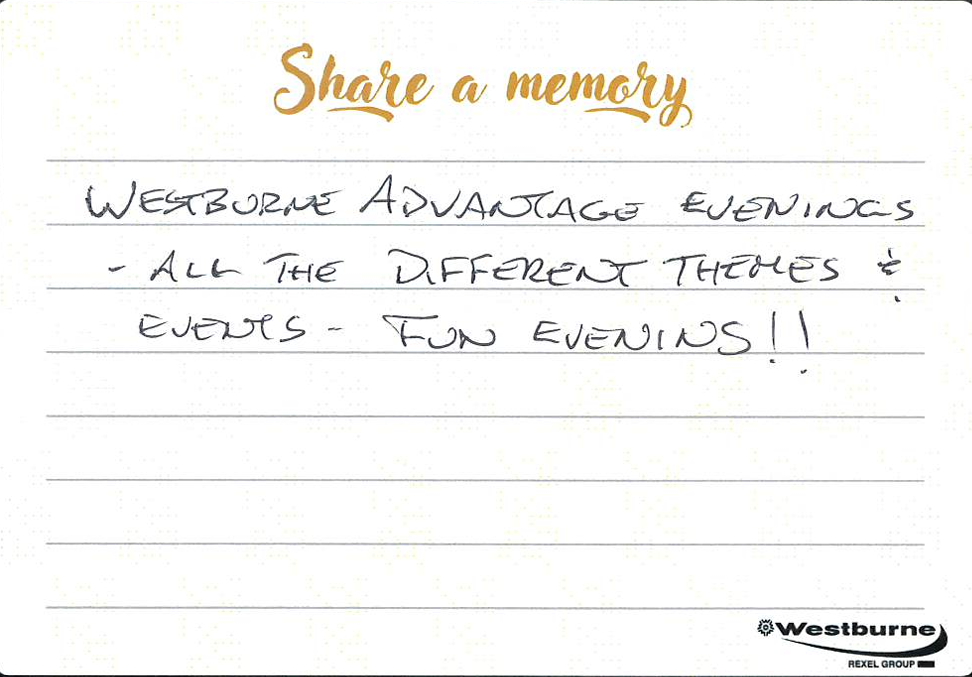 Share a memory
WESTBURNE ADVANTAGE EVENINGS
- ALL THE DIFFERENT THEMES &
EVENTS - FUN EVENINS!!
Westburne
REXEL GROUP